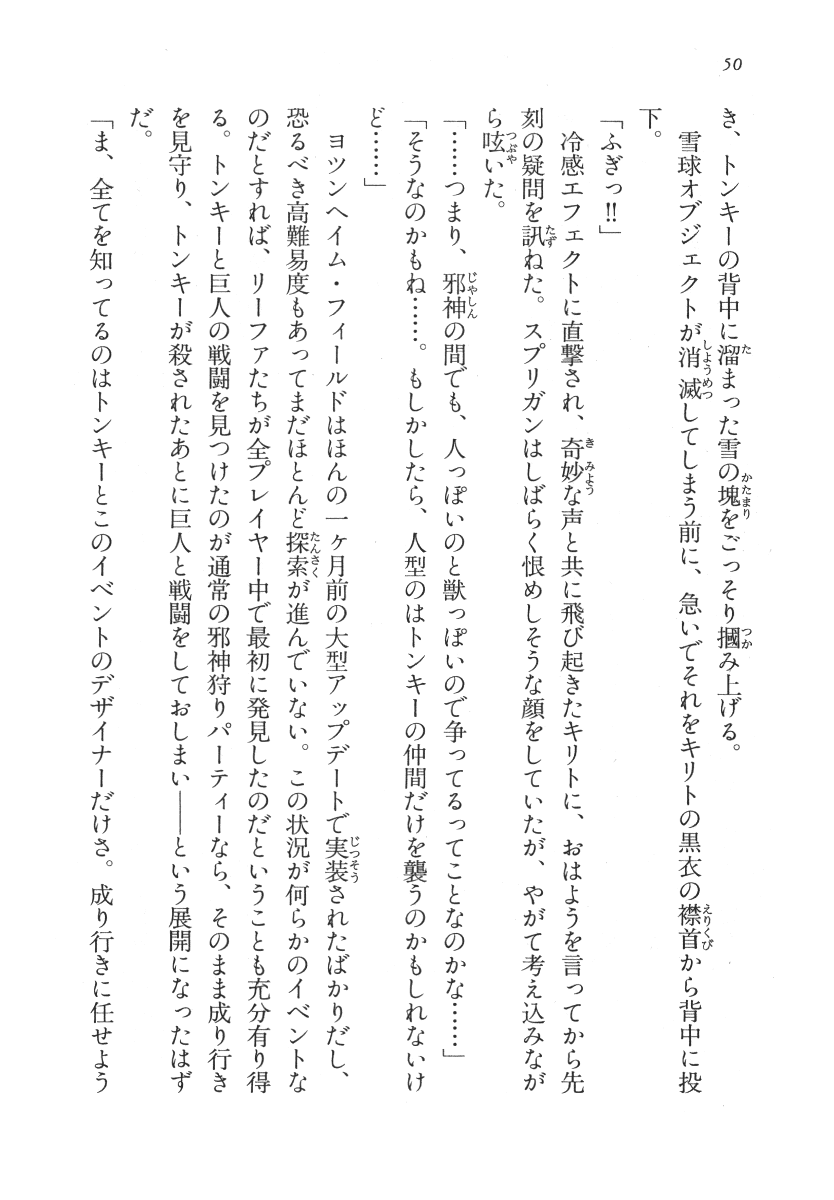 50
き、トンキーの背中に溜まった雪の塊をごっそり摑み上げる。
　雪球オブジェクトが消滅してしまう前に、急いでそれをキリトの黒衣の襟首から背中に投
下。
「ふぎっ!!」
　冷感エフェクトに直撃され、奇妙な声と共に飛び起きたキリトに、おはようを言ってから先
刻の疑問を訊ねた。スプリガンはしばらく恨めしそうな顔をしていたが、やがて考え込みなが
ら呟いた。
「……つまり、邪神の間でも、人っぽいのと獣っぽいので争ってるってことなのかな……」
「そうなのかもね……。もしかしたら、人型のはトンキーの仲間だけを襲うのかもしれないけ
ど……」
　ヨツンヘイム・フィールドはほんの一ヶ月前の大型アップデートで実装されたばかりだし、
恐るべき高難易度もあってまだほとんど探索が進んでいない。この状況が何らかのイベントな
のだとすれば、リーファたちが全プレイヤー中で最初に発見したのだということも充分有り得
る。トンキーと巨人の戦闘を見つけたのが通常の邪神狩りパーティーなら、そのまま成り行き
を見守り、トンキーが殺されたあとに巨人と戦闘をしておしまい――という展開になったはず
だ。
「ま、全てを知ってるのはトンキーとこのイベントのデザイナーだけさ。成り行きに任せよう